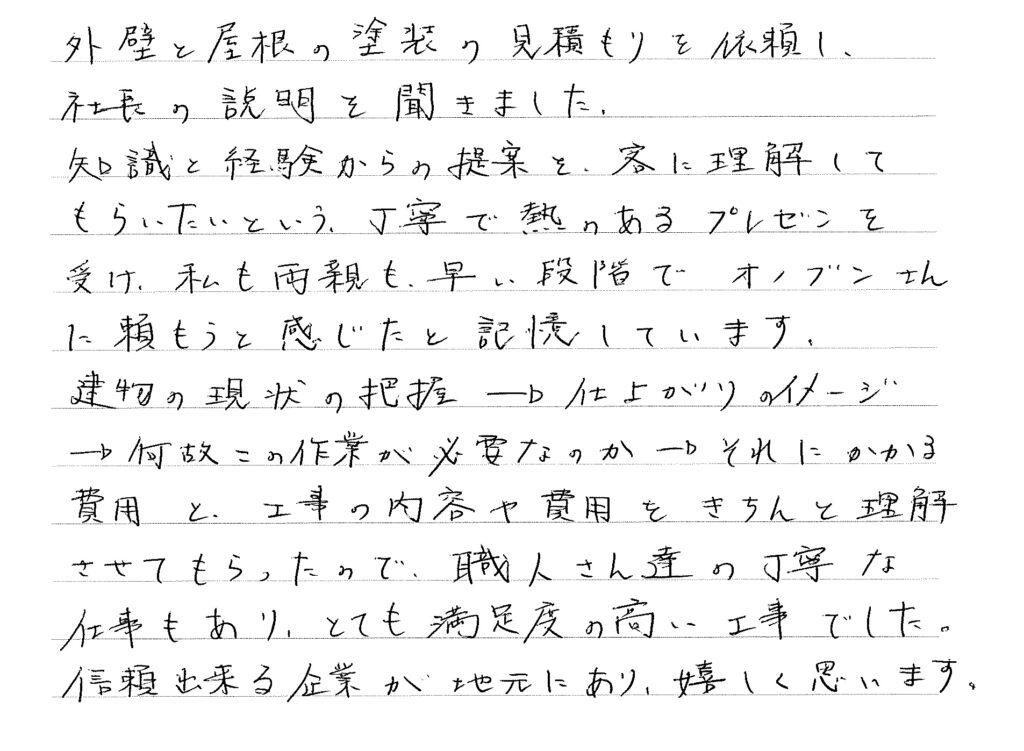 外壁と屋根の塗装の見積もりを依頼し、
社長の説明を聞きました。
知識と経験からの提案を、客に理解して
もらいたいという、丁寧で熱のあるプレゼンを
受け、私も両親も、早い段階でオノブンさん
に頼もうと感じたと記憶しています。
建物の現状の把握→仕上がりのイメージ
→何故この作業が必要なのか→それにかかる
費用と、工事の内容や費用をきちんと理解
させてもらったので、職人さん達の丁寧な
仕事もあり、とても満足度の高い工事でした。
信頼出来る企業が地元にあり、嬉しく思います。